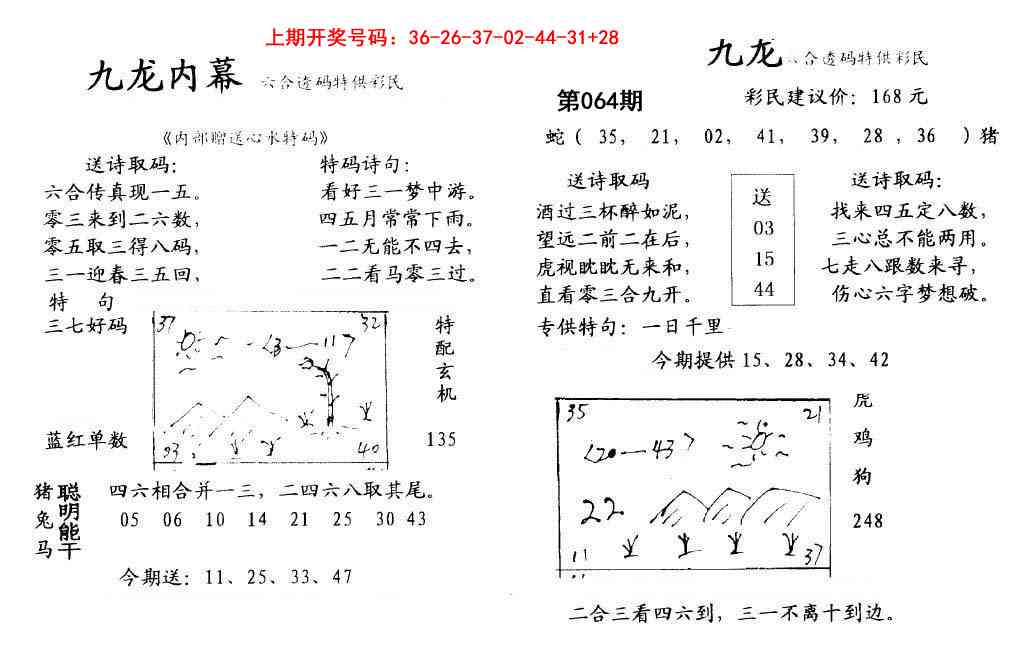 上期开奖号码：36-26-37-02-44-31+28
九龙内幕 六合透码特供彩民
《内部赠送心水特码》
送诗取码：
六合传真现一五。
零三来到二六数，
零五取三得八码，
三一迎春三五回，
特码诗句：
看好三一梦中游。
四五月常常下雨。
一二无能不四去，
二二看马零三过。
特 句
三七好码
蓝红单数
37 32
13 — 11
03 40
特配玄机
135
猪兔马
聪明能干
四六相合并一三，二四六八取其尾。
05 06 10 14 21 25 30 43
今期送：11、25、33、47
九龙 六合透码特供彩民
第064期
彩民建议价：168元
蛇（ 35， 21， 02， 41， 39， 28 ，36 ）猪
送诗取码
酒过三杯醉如泥，
望远二前二在后，
虎视眈眈无来和，
直看零三合九开。
送
03
15
44
送诗取码：
找来四五定八数，
三心总不能两用。
七走八跟数来寻，
伤心六字梦想破。
专供特句：一日千里
今期提供15、28、34、42
35 21
20 — 43
22
11 37
虎
鸡
狗
248
二合三看四六到，三一不离十到边。